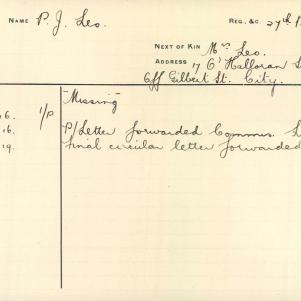 NAME P. J. Leo. REG. &C. 27th
NEXT OF KIN Mrs. Leo.
ADDRESS 17 O'Halloran S
Off Gilbert St. City.
Missing
6. 1/P
16. P/Letter forwarded Commns. L
19. final circular letter forwarded